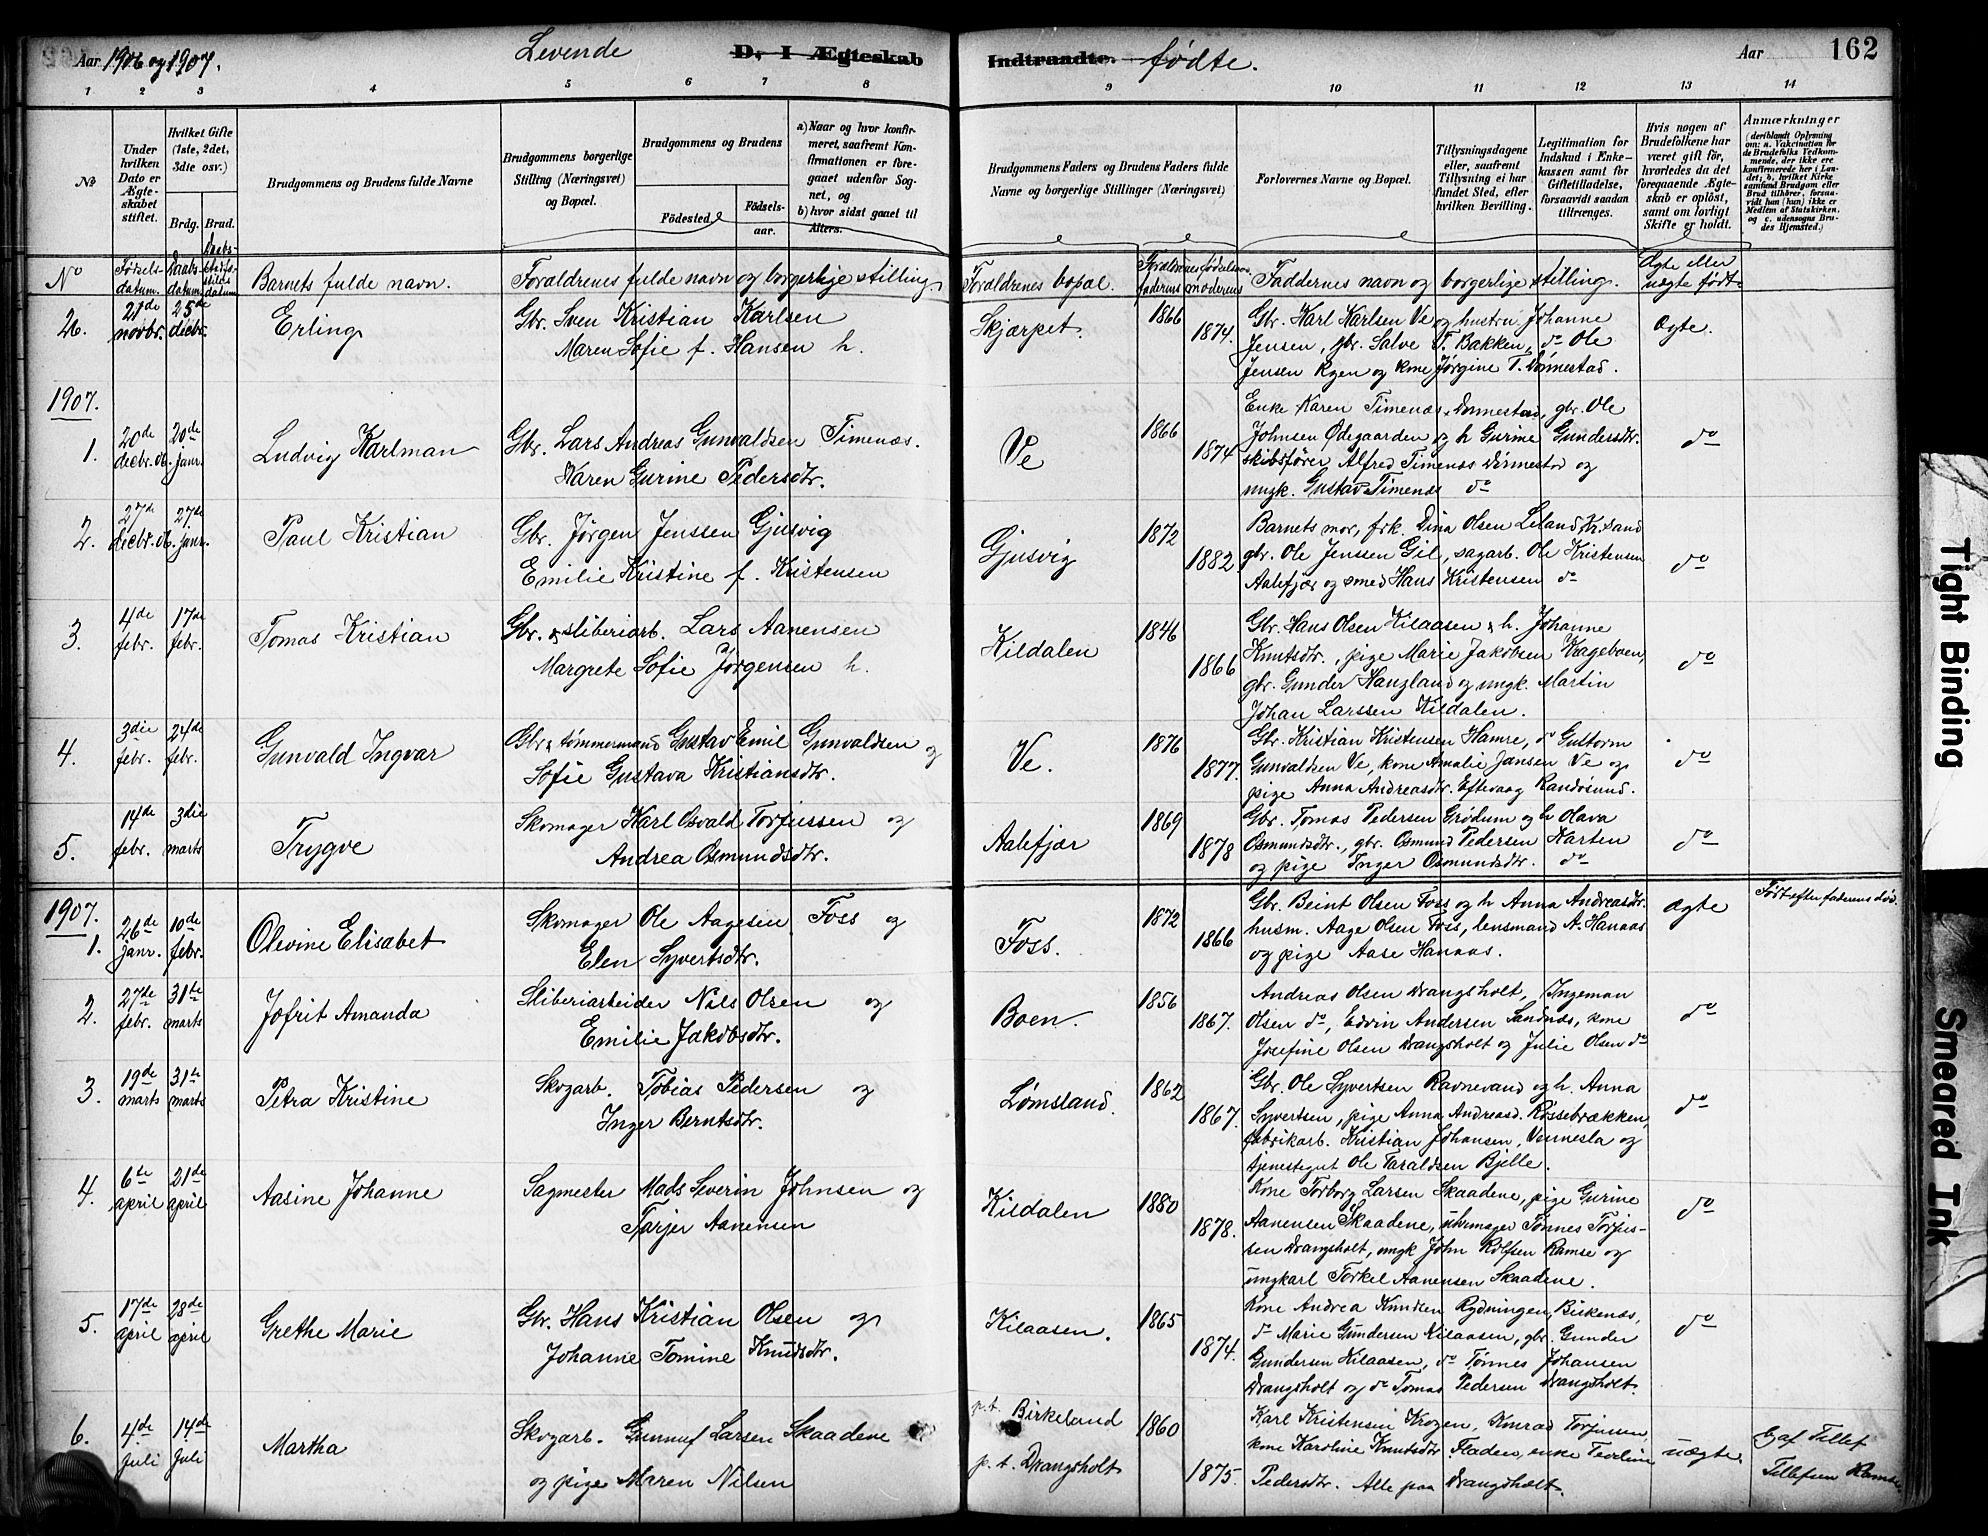 Aar 1906 og 1907.
Levende D. I Ægteskab Indtraadte. fødte.
Aar 162
1 2 3 4 5 6 7 8 9 10 11 12 13 14
No
Under hvilken Dato er Ægteskabet stiftet.
Hvilket Gifte (1ste, 2det, 3die osv.)
Brdg. Brud.
Brudgommens og Brudens fulde Navne
Brudgommens borgerlige Stilling (Næringsvei) og Bopæl.
Brudgommens og Brudens
Fødested.
Fødselsaar.
a) Naar og hvor konfirmeret, saafremt Konfirmationen er foregaaet udenfor Sognet, og
b) hvor sidst gaaet til Alters.
Brudgommens Faders og Brudens Faders fulde Navne og borgerlige Stillinger (Næringsvei)
Forlovernes Navne og Bopæl.
Tillysningsdagene eller, saafremt Tillysning ei har fundet Sted, efter hvilken Bevilling.
Legitimation for Indskud i Enkekassen samt for Giftetilladelse, forsaavidt saadan tiltrænges.
Hvis nogen af Brudefolkene har været gift før, hvorledes da det foregaaende Ægteskab er opløst, samt om lovligt Skifte er holdt.
Anmærkninger (deriblandt Oplysning om: a. Vakcination for de Brudefolks Vedkommende, der ikke ere konfirmerede her i Landet; b. hvilket Kirkesamfund Brudgom eller Brud tilhører, forsaavidt han (hun) ikke er Medlem af Statskirken, og c. udensogns Brudes Hjemsted.)
No Fødselsdatum. Daabsdatum. Daabs- datum Barnets fulde navn. Forældrenes fulde navn og borgerlige stilling. Forældrenes bopæl. faderens moderens Faddernes navn og borgerlige stilling. Ægte eller uægte født.
26. 21de novbr. 25de decbr. Erling
Gbr. Sven Kristian Karlsen
Maren Sofie f. Hansen h.
Skjærpet. 1866 1874.
Gbr. Karl Karlsen Ve og hustru Johanne
Jensen, gbr. Salve T. Bakken, do Ole
Jensen Ryen og kone Jørgine T. Dønnestad.
Ægte.
1907.
1. 20de decbr. 06. 20de janr. Ludvig Karlman
Gbr. Lars Andreas Gunvaldsen Timenæs.
Karen Gurine Pedersdtr.
Ve 1866 1874
Enke Karen Timenæs, Dønnestad, gbr. Ole
Johnsen Ødegaarden og h Gurine Gundersdtr.
skibsfører Alfred Timenæs Dønnestad og
ungk. Gustav Timenæs do
do
2. 27de decbr. 06. 27. janr. Paul Kristian
Gbr. Jørgen Jenssen Gjusvig
Emilie Kristine f. Kristensen
Gjusvig 1872 1882
Barnets mor, frk. Dina Olsen Leland Kr.sand
gbr. Ole Jenssen Gil, sagarb. Ole Kristensen
Aalefjær og smed Hans Kristensen do
do
3. 4de febr. 17de febr. Tomas Kristian
Gbr. & sliberiarb. Lars Aanensen
Margrete Sofie Jørgensen h.
Kildalen 1846 1866
Gbr. Hans Olsen Kilaasen & h. Johanne
Knutsdtr., pige Marie Jakobsen Krageboen,
gbr. Gunder Haugland og ungk. Martin
Johan Larssen Kildalen.
do
4. 3die febr. 24de febr. Gunvald Ingvar
Gbr. & tømmermand Gustav Emil Gunvaldsen og
Sofie Gustava Kristiansdtr.
Ve. 1876 1877.
Gbr. Kristian Kristensen Hamre, do Guttorm
Gunvaldsen Ve, kone Amalie Jansen Ve og
pige Anna Andreasdtr. Eftevaag Randøsund.
do
5. 14de febr. 3die marts Trygve
Skomager Karl Osvald Torjussen og
Andrea Osmundsdtr.
Aalefjær 1869 1878
Gbr. Tomas Pedersen Grødum og h Olava
Osmundsdtr., gbr. Osmund Pedersen Karten
og pige Inger Osmundsdtr. do
do
1907.
1. 26de janr. 10de febr. Olevine Elisabet
Skomager Ole Aagesen Foss og
Elen Syvertsdtr.
Foss. 1872 1866
Gbr. Beint Olsen Foss og h Anna Andreasdtr.
husm. Aage Olsen Foss, lensmand A. Hanaas
og pige Aase Hanaas.
ægte
Født efter faderens død.
2. 27de febr. 31te marts Jofrit Amanda
Sliberiarbeider Nils Olsen og
Emilie Jakobsdtr.
Boen. 1856 1867.
Andreas Olsen Drangsholt, Ingeman
Olsen do, Edvin Andersen Sandnæs, kone
Josefine Olsen Drangsholt og Julie Olsen do
do
3. 19de marts 31te marts Petra Kristine
Skogarb. Tobias Pedersen og
Inger Berntsdtr.
Lømsland. 1862 1867.
Gbr. Ole Syvertsen Ravnevand og h. Anna
Syvertsen, pige Anna Andreasd. Røssebrækken,
fabrikarb. Kristian Johansen, Vennesla og
tjenestegut Ole Taraldsen Bjelle.
do
4. 6te april 21de april Aasine Johanne
Sagmester Mads Severin Johnsen og
Tarjer Aanensen
Kildalen 1880 1878.
Kone Torborg Larsen Skaadene, pige Gurine
Aanensen Skaadene, uhrmager Tønnes Torjussen
Drangsholt, ungk John Rolfsen Ramse og
ungkarl Torkel Aanensen Skaadene.
do
5. 17de april 28de april Grethe Marie
Gbr. Hans Kristian Olsen og
Johanne Tomine Knudsdtr.
Kilaasen. 1865 1874.
Kone Andrea Knudsen Rydningen, Birkenæs,
do Marie Gundersen Kilaasen, gbr. Gunder
Gundersen Kilaasen, do Tønnes Johansen
Drangsholt og do Tomas Pedersen Drangsholt.
do
6. 4de juli 14de juli Martha
Skogarb. Gunnuf Larsen Skaadene
og pige Maren Nilsen
p.t. Birkeland
p.t. Drangsholt
1860 1875.
Karl Kristensen Krogen, Konrad Torjussen,
kone Karoline Knutsdtr Fladen, enke Teoline
Pedersdtr. Alle paa Drangsholt.
uægte
Tillefsen Ramse
Tight Binding
Smeared Ink